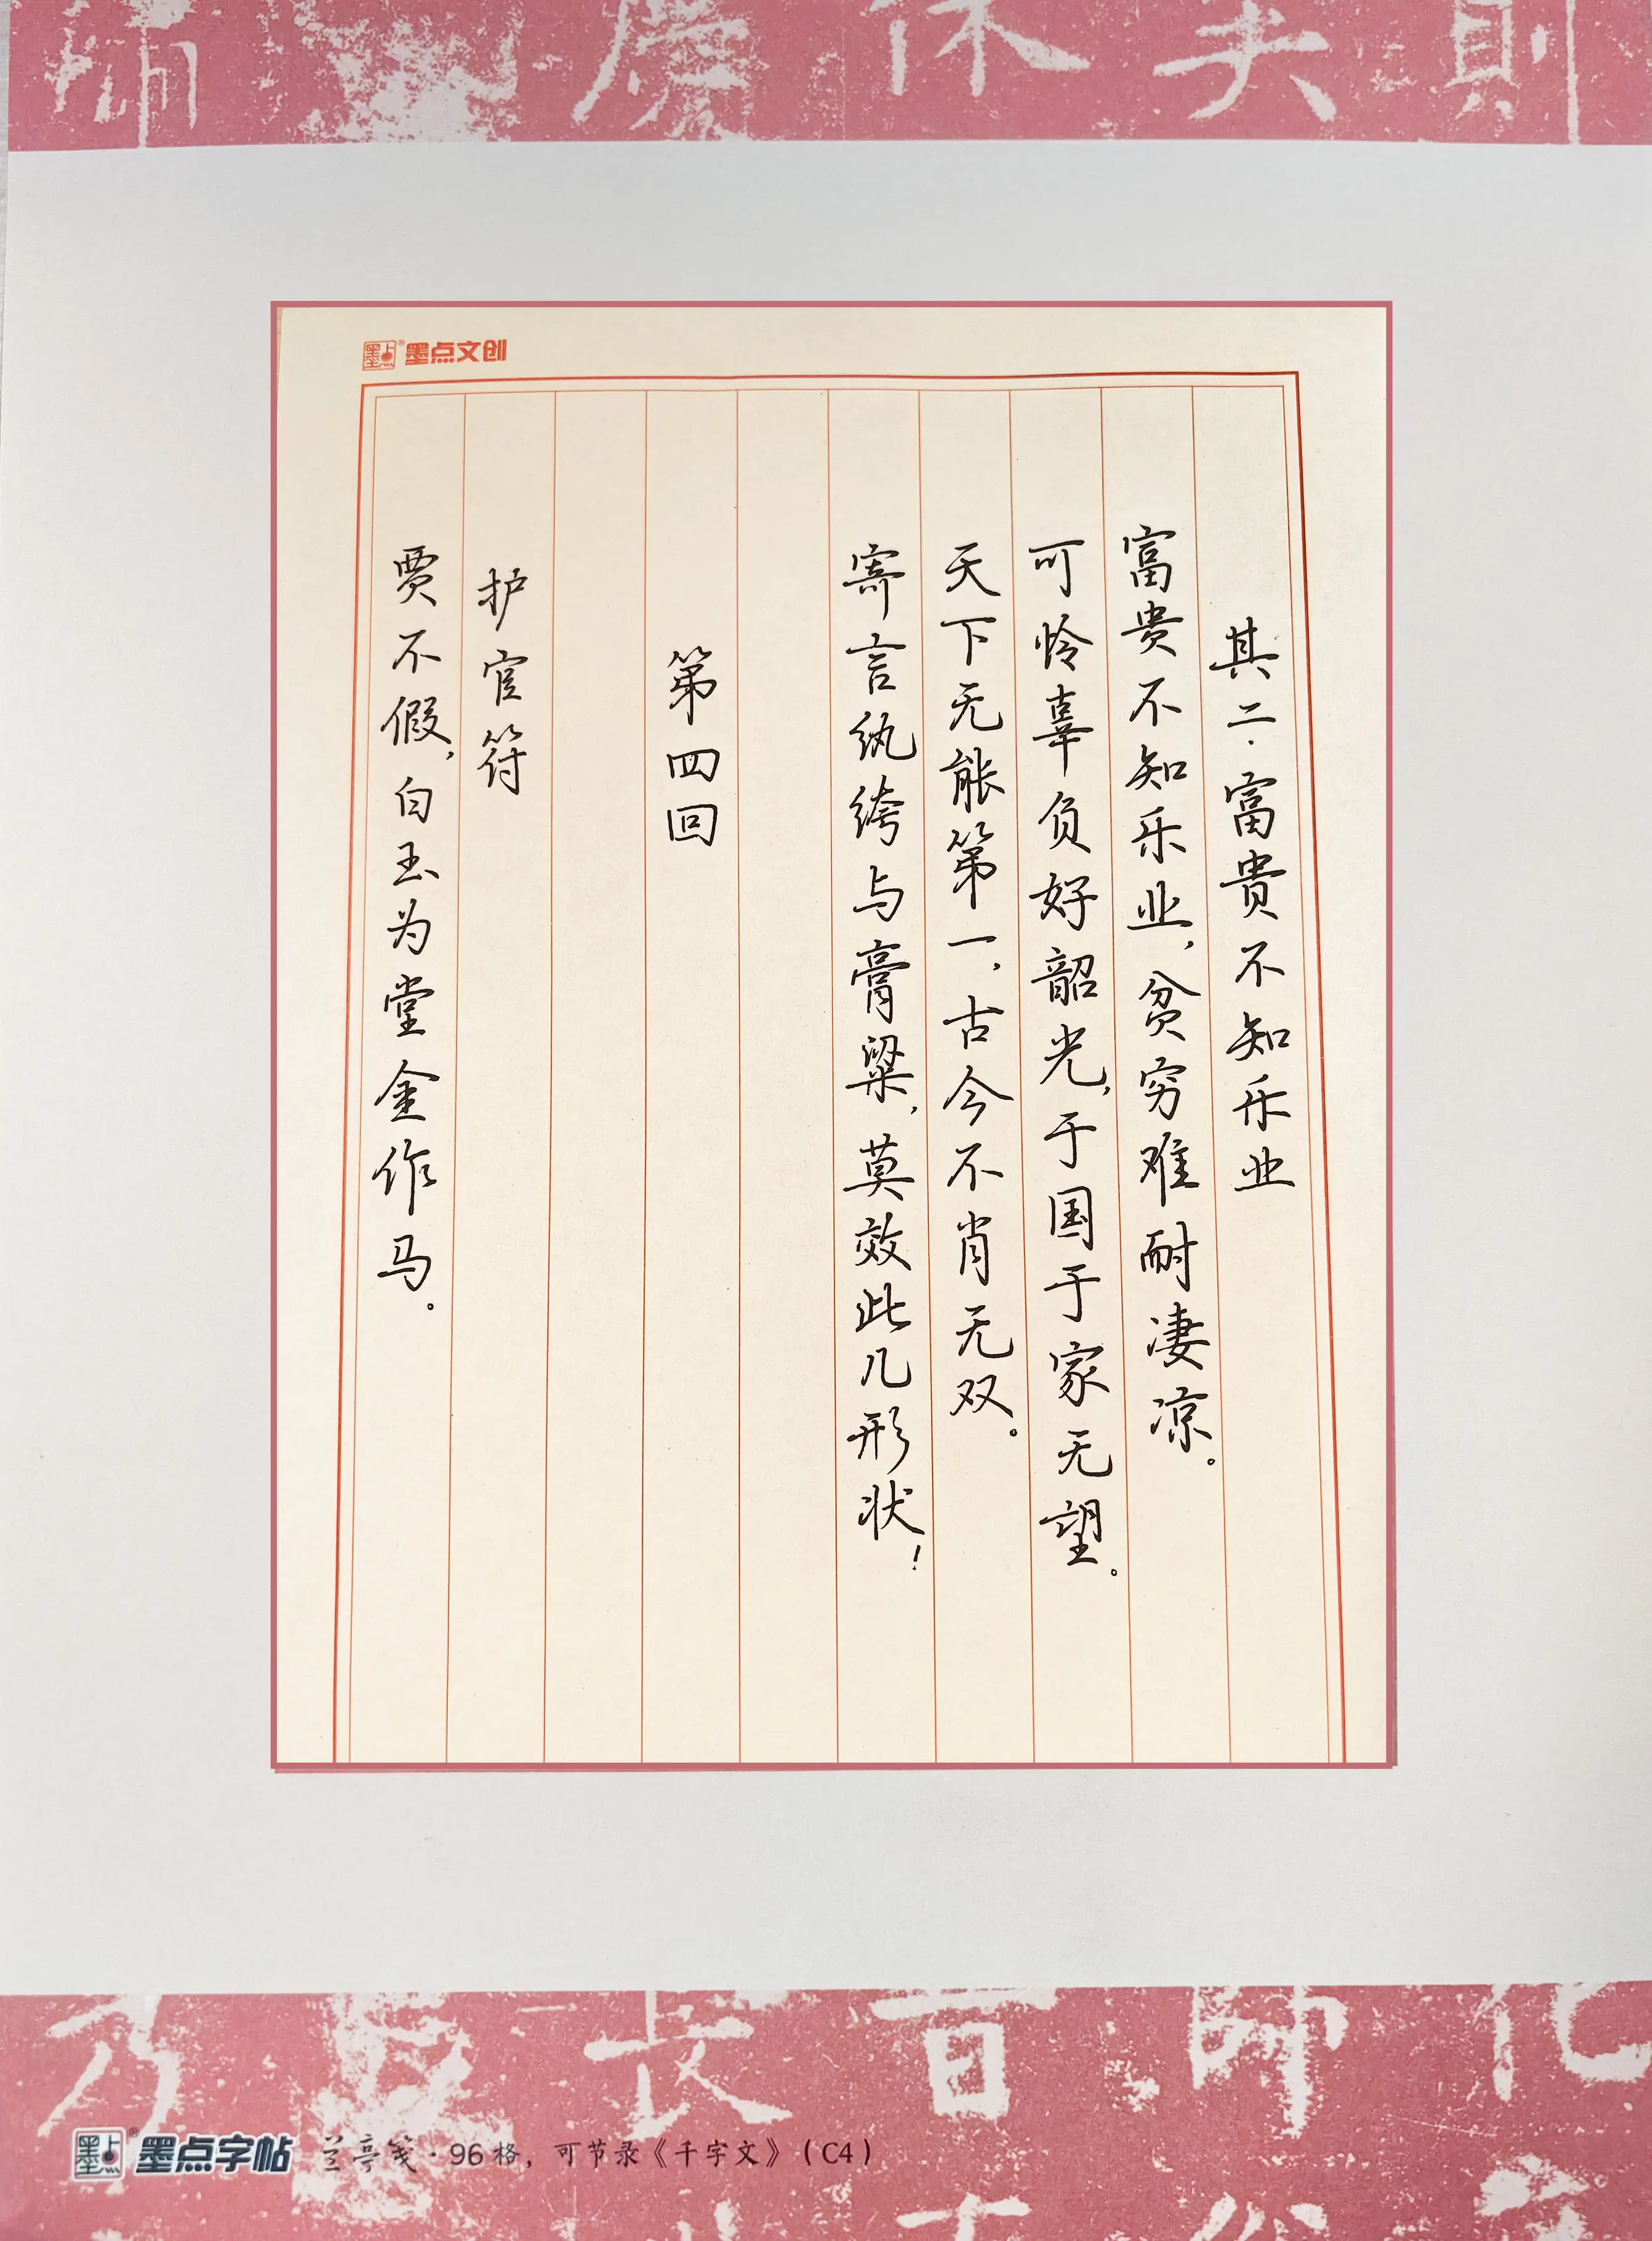 则夫休庆
墨点 ® 墨点文创
其二·富贵不知乐业
富贵不知乐业,贫穷难耐凄凉。
可怜辜负好韶光,于国于家无望。
天下无能第一,古今不肖无双。
寄言纨绔与膏粱,莫效此儿形状!
第四回
护官符
贾不假,白玉为堂金作马。
墨点 ® 墨点字帖 兰亭笺·96格,可节录《千字文》(C4)